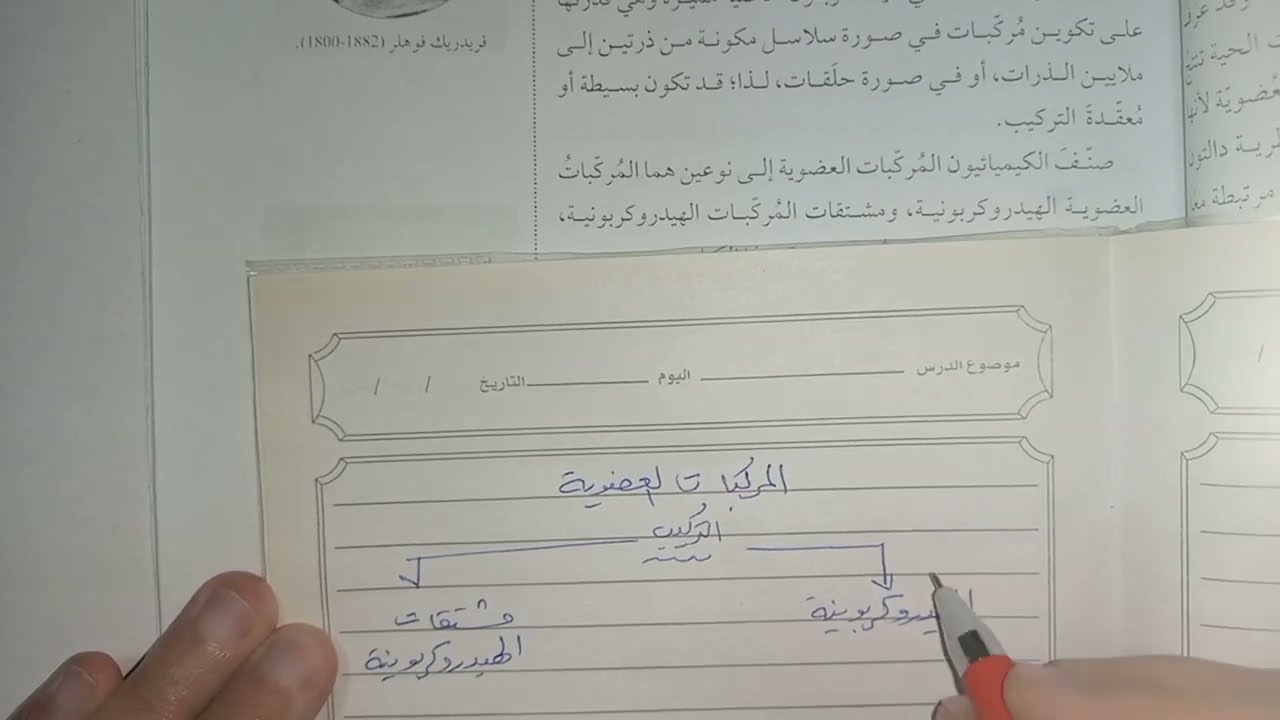 على تكوين مُركّبات في صورة سلاسل مكونة من ذرتين إلى
ملايين الذرات، أو في صورة حلَقات، لذا؛ قد تكون بسيطة أو
مُعقّدةَ التركيب.
صنّفَ الكيميائيون المُركّبات العضوية إلى نوعين هما المُركّباتُ
العضوية الهيدروكربونية، ومشتقات المُركّبات الهيدروكربونية،
فريدريك فوهلر (1882-1800).
ت الحية تنتج
لعُضويّة لأنها
ظرية دالتون
مرتبطة معا
موضوع الدرس اليوم التاريخ / /
المركبات العضوية
التركيب
الهيدروكربونية
مشتقات
الهيدروكربونية